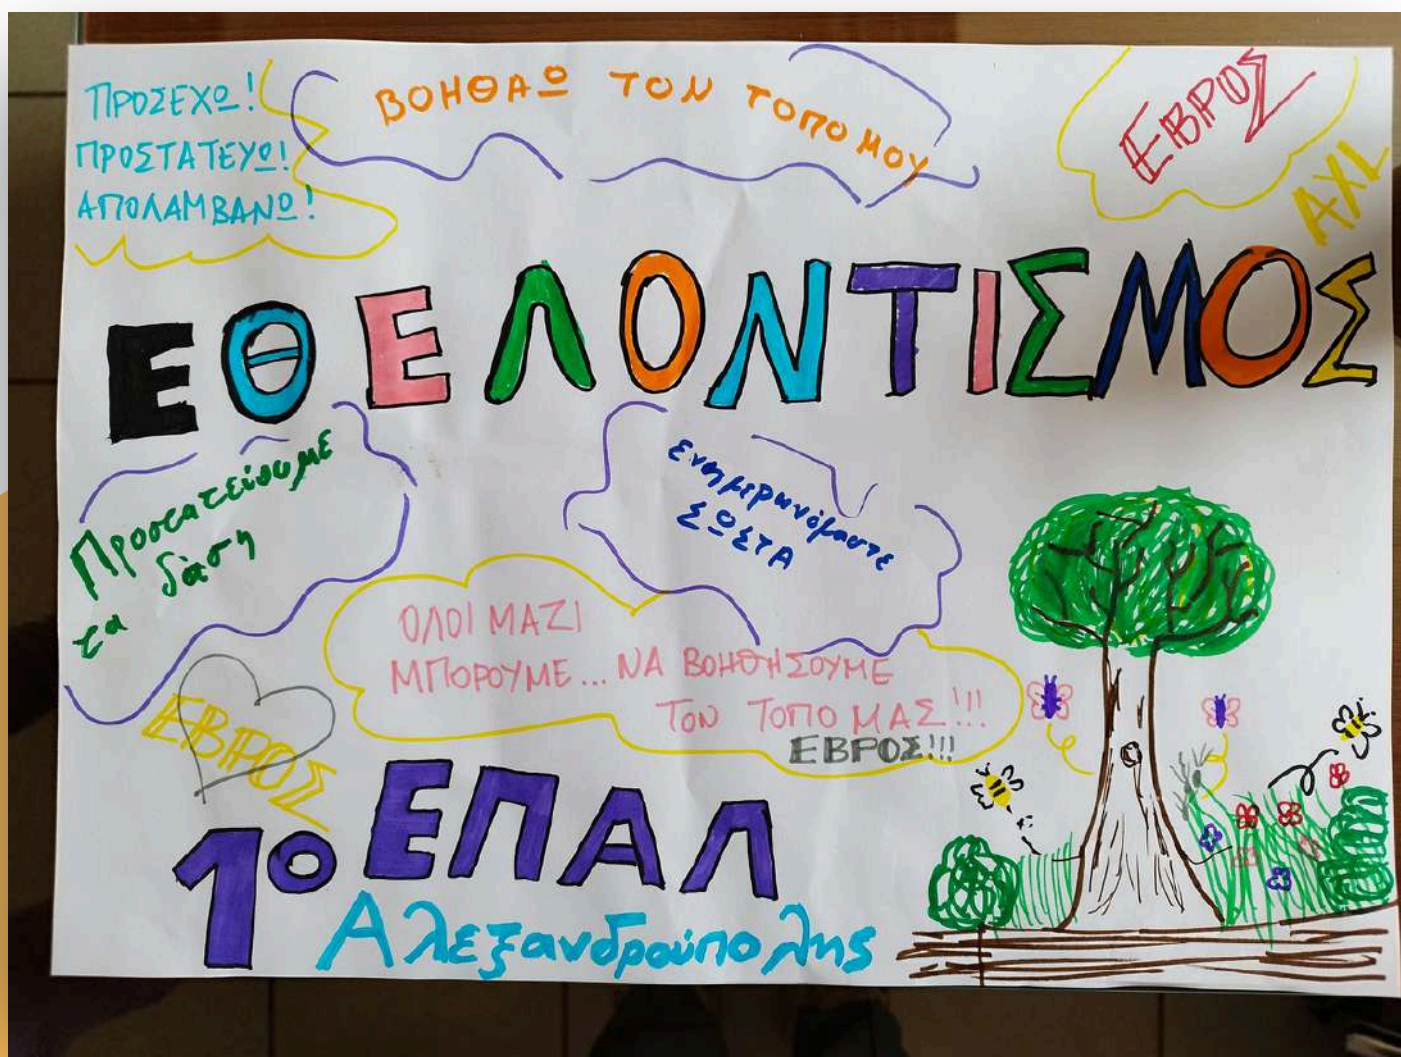 ΠΡΟΣΕΧΩ!
ΠΡΟΣΤΑΤΕΥΩ!
ΑΠΟΛΑΜΒΑΝΩ!
ΒΟΗΘΑΩ ΤΟΝ ΤΟΠΟ ΜΟΥ
ΕΒΡΟΣ
ΑΧΙ
ΕΘΕΛΟΝΤΙΣΜΟΣ
Προστατεύουμε
τα δάση
ενημερωνόμαστε
ΣΩΣΤΑ
ΟΛΟΙ ΜΑΖΙ
ΜΠΟΡΟΥΜΕ... ΝΑ ΒΟΗΘΗΣΟΥΜΕ
ΤΟΝ ΤΟΠΟ ΜΑΣ!!!
ΕΒΡΟΣ!!!
ΕΒΡΟΣ
1ο ΕΠΑΛ
Αλεξανδρούπολης